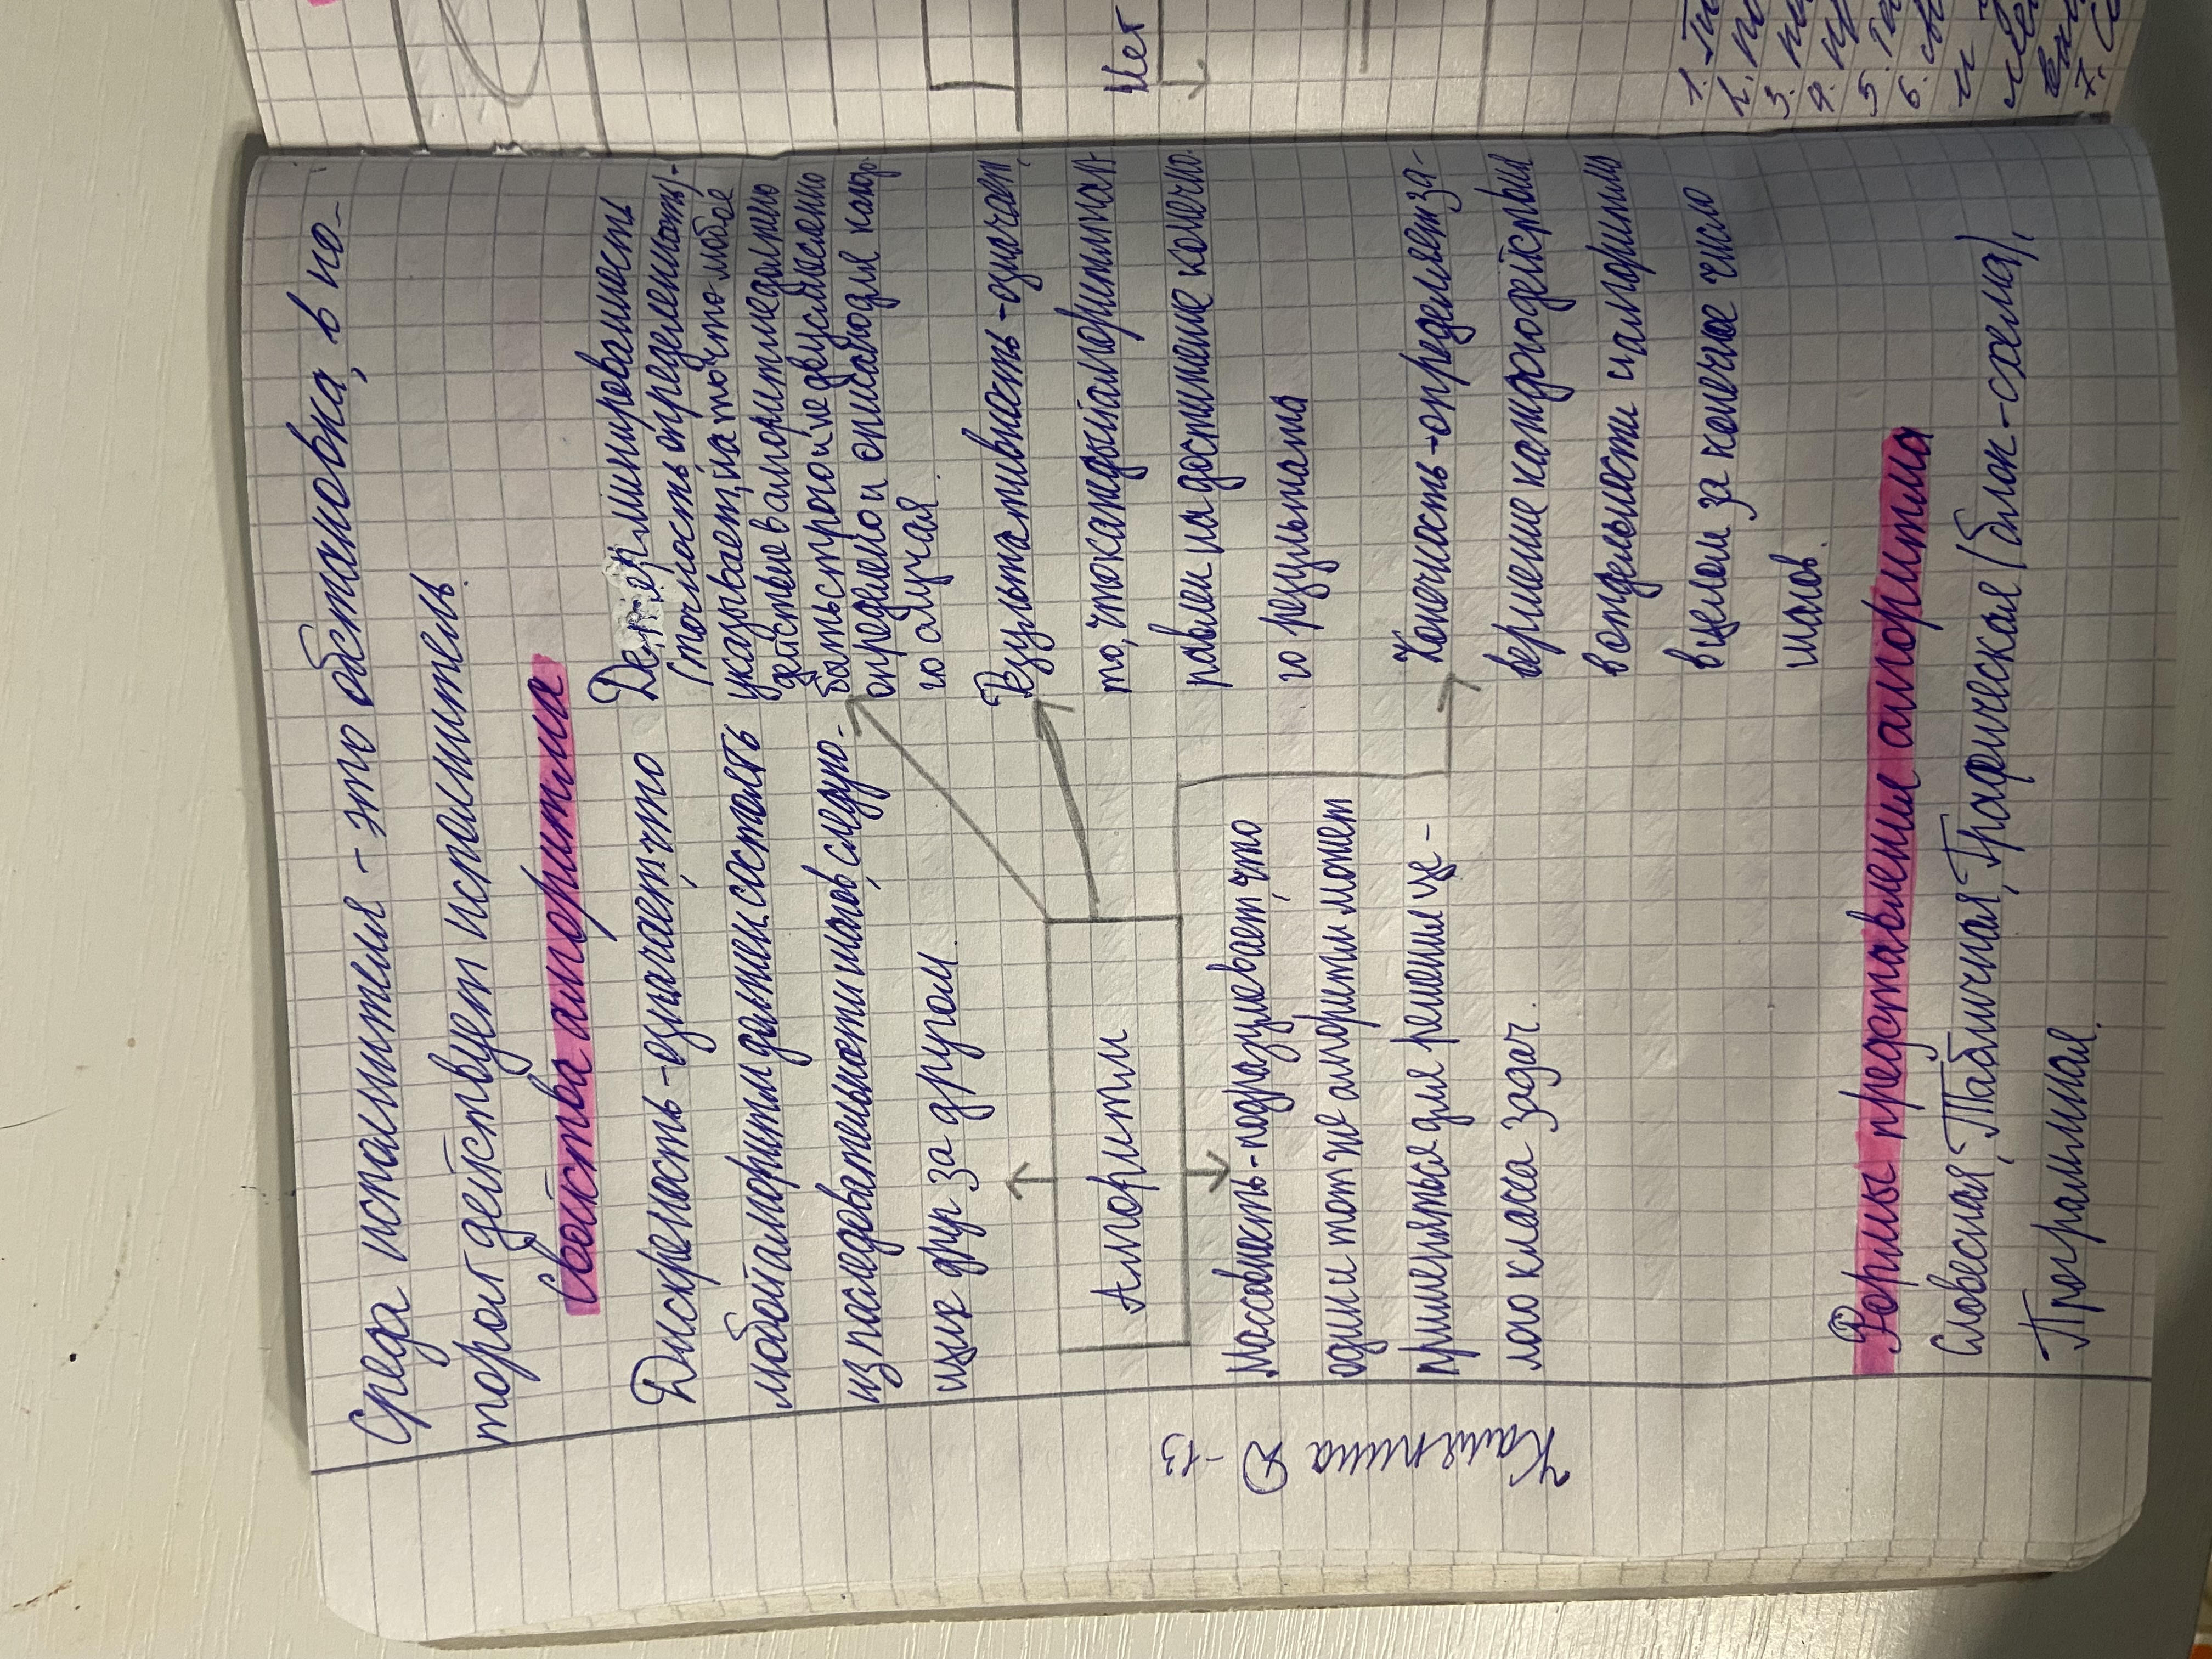 Среда исполнителя - это обстановка, в ко-
торой действует исполнитель.
Свойства алгоритма
Дискретность - означает, что
любой алгоритм должен состоять
из последовательности шагов, следую-
щих друг за другом.
Детерминированность
(точность, определенность) -
указывает, на то что любое
действие в алгоритме должно
быть строго и не двусмысленно
определено и описано для каждо-
го случая.
Результативность - означает,
то, что каждый алгоритм нап-
равлен на достижение конечно-
го результата
Конечность - определяет за-
вершение каждого действия
в отдельности и алгоритма
в целом за конечное число
шагов.
Алгоритм
Массовость - подразумевает, что
один и тот же алгоритм может
применяться для решения це-
лого класса задач.
Формы представление алгоритма
Словесная, Табличная, Графическая (блок-схема),
Программная.
-13
Нет
1.
2.
3.
4.
5.
6.
и
7.